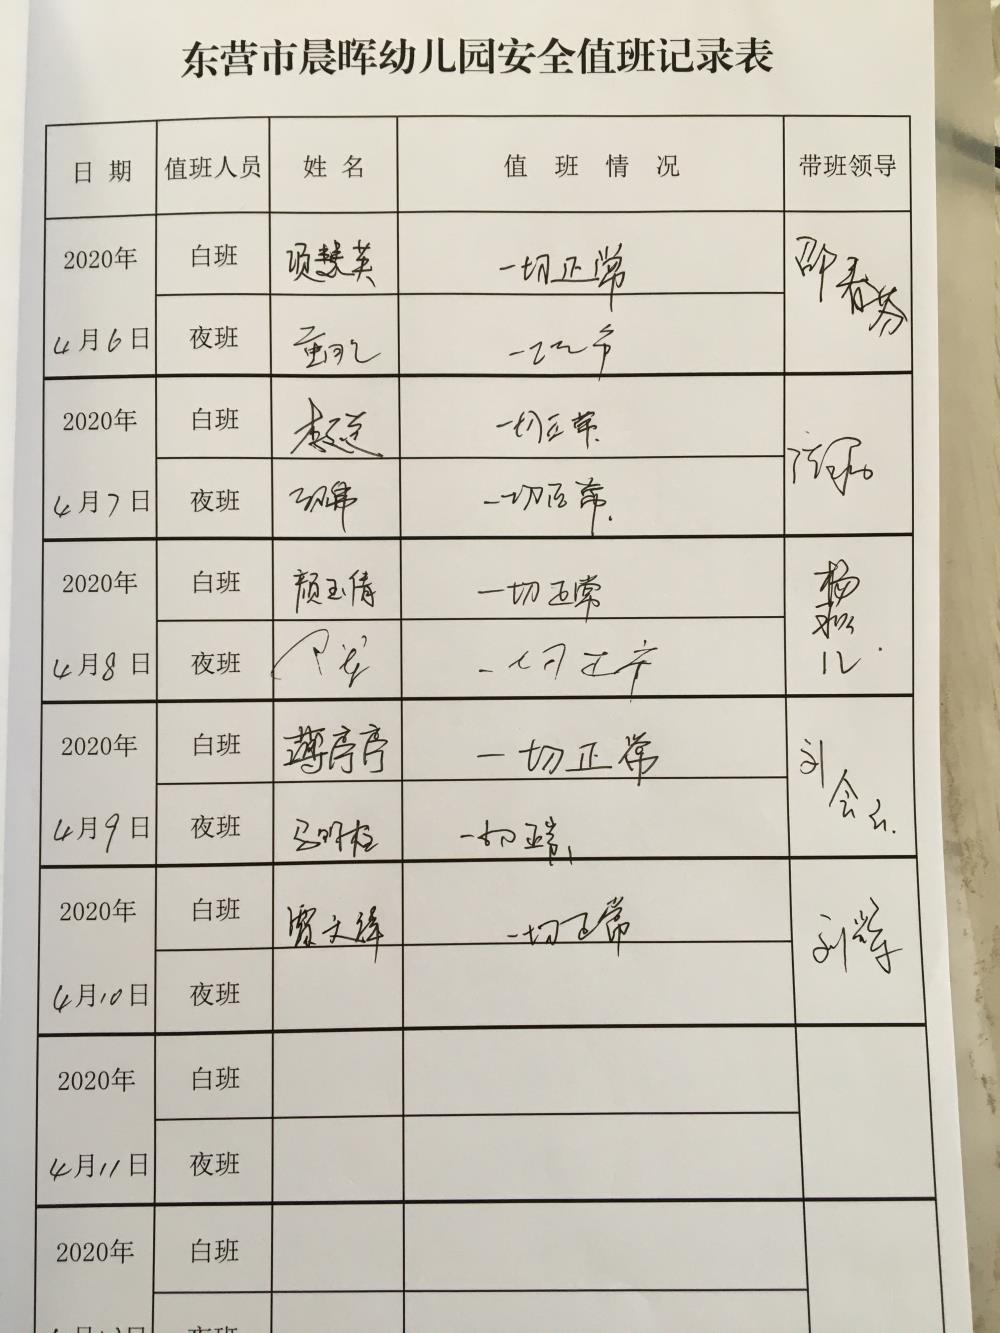 东营市晨晖幼儿园安全值班记录表
日期 值班人员 姓名 值班情况 带班领导
2020年 白班 项慧英 一切正常 邵春芬
4月6日 夜班
2020年 白班 一切正常
4月7日 夜班 一切正常
2020年 白班 颜玉倩 一切正常 杨
4月8日 夜班 一切正常
2020年 白班 薄亭亭 一切正常 刘会云
4月9日 夜班 一切正常
2020年 白班 贾文锋 一切正常 刘学
4月10日 夜班
2020年 白班
4月11日 夜班
2020年 白班
夜班